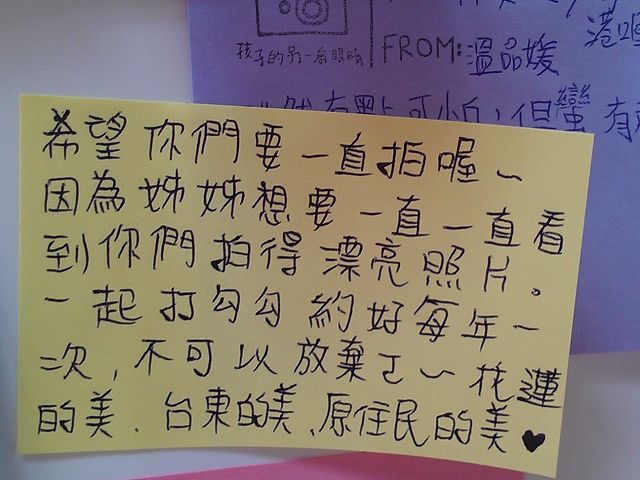 孩子的另一扇眼睛
FROM: 溫品媛
希望你們要一直拍喔~
因為姊姊想要一直一直看
到你們拍得漂亮照片。
一起打勾勾約好每年一
次,不可以放棄ㄛ~花蓮
的美、台東的美、原住民的美♥